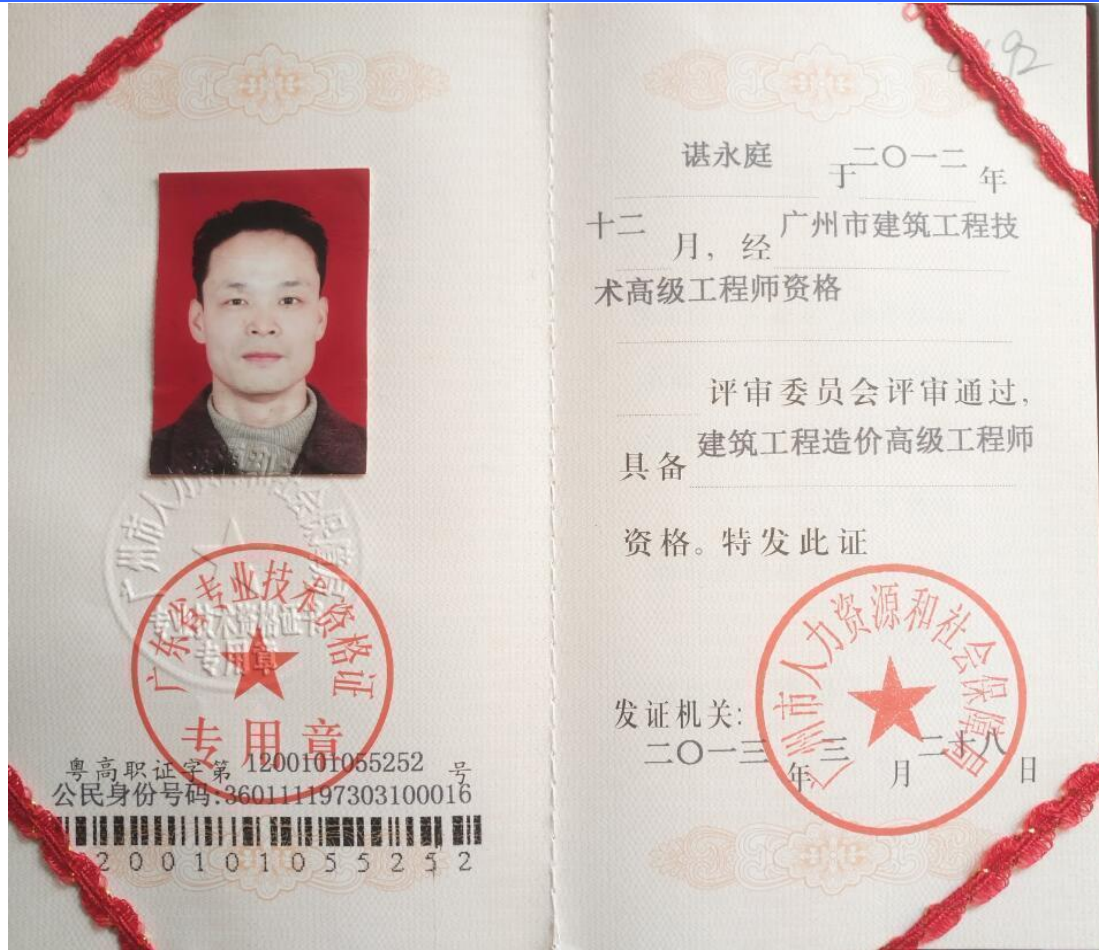 广州市人力资源和社会保障局
专业技术资格证书
专用章
广东省专业技术资格证
专用章
粤高职证字第 1200101055252 号
公民身份号码:360111197303100016
200101055252
92
谌永庭 于二〇一二年
十二月，经广州市建筑工程技
术高级工程师资格
评审委员会评审通过,
具备建筑工程造价高级工程师
资格。特发此证
广州市人力资源和社会保障局
发证机关:
二〇一三年三月二十八日